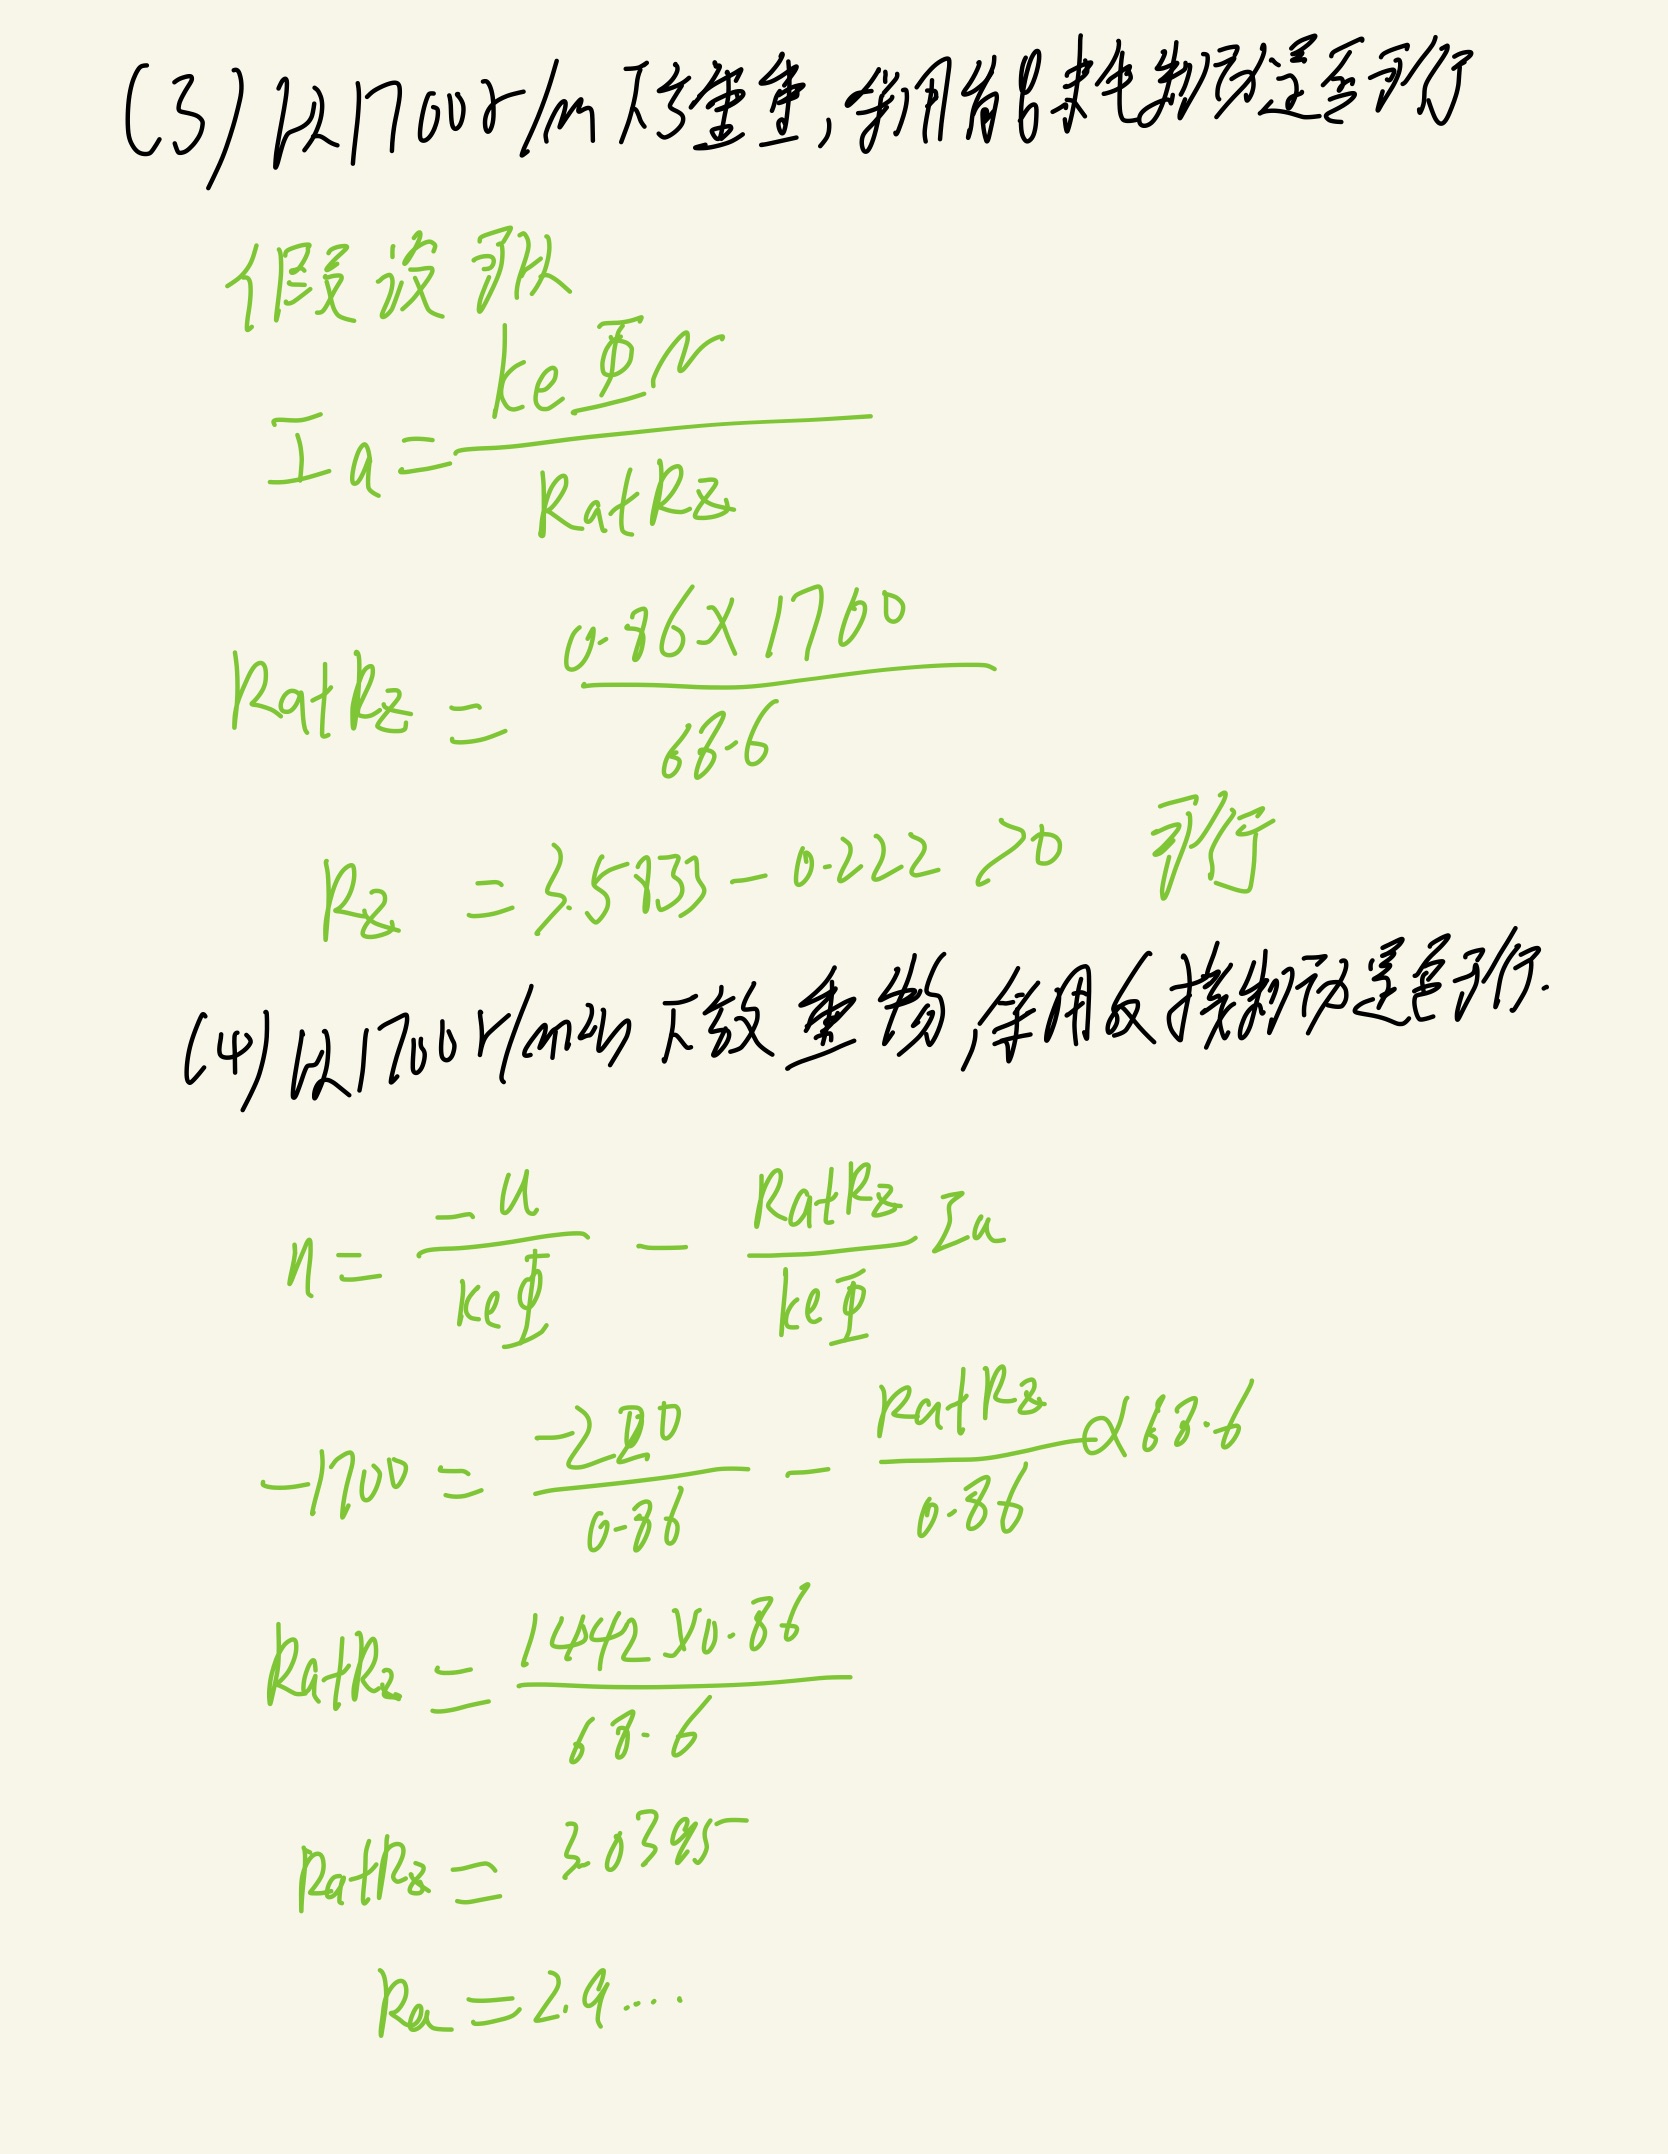 (3) 以1700r/m 下放重重,采用能耗制动是否可行
假设可以
Ia = keΦN / Ra+Rz
Ra+Rz = 0.86×1700 / 68.6
Rz = 3.5833-0.222 >0 可行
(4) 以1700r/min 下放重物,采用反接制动是否可行.
n = -U / keΦ - Ra+Rz / keΦ Ia
-1700 = -220 / 0.86 - Ra+Rz / 0.86 × 68.6
Ra+Rz = 1442×0.86 / 68.6
Ra+Rz = 3.0395
Ra = 2.9....